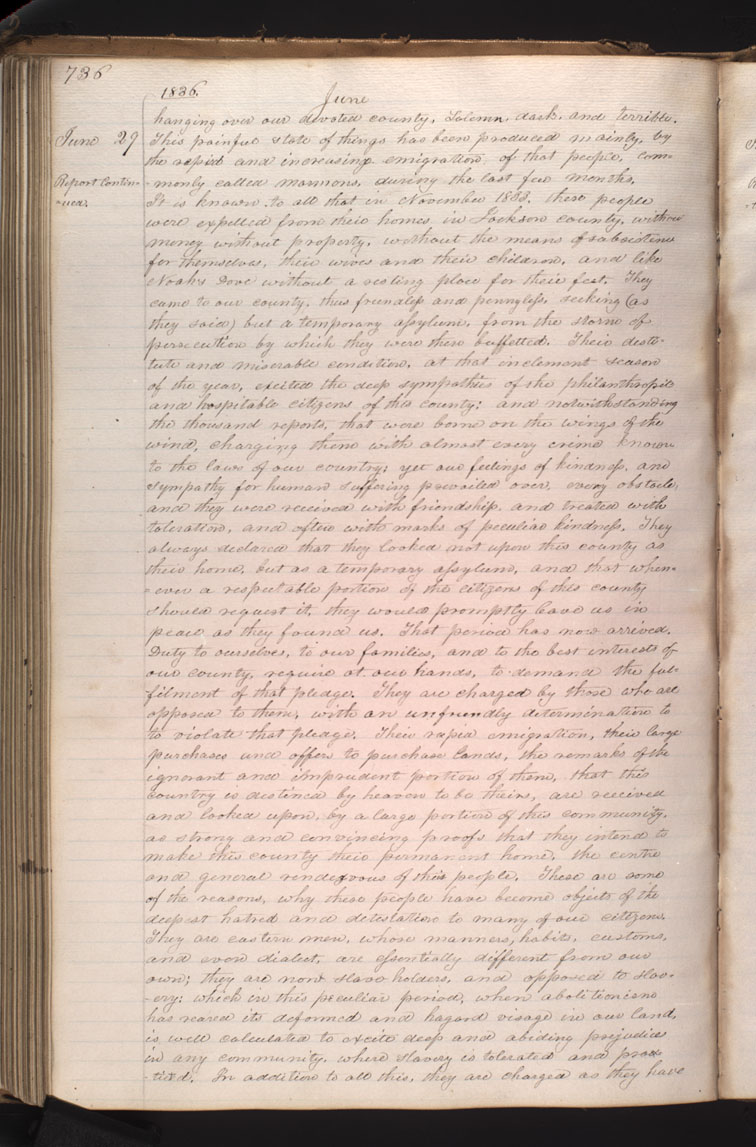 736
1836.
June
hanging over our devoted county, Solemn, dark, and terrible.
June 29 This painful state of things has been produced mainly, by
the rapid and increasing emigration, of that people, com-
Report Contin- -monly called mormons, during the last few months.
-ued. It is known to all that in November 1833. these people
were expelled from their homes in Jackson county, without
money without property, without the means of subsistence
for themselves, their wives and their children, and like
Noah's Dove without a resting place for their feet. They
came to our county, thus friendless and pennyless, seeking (as
they said) but a temporary assylum, from the storm of
persecution by which they were then buffetted. Their desti-
tute and miserable condition, at that inclement season
of the year, excited the deep sympathies of the philanthropic
and hospitable citizens of this county; and notwithstanding
the thousand reports, that were borne on the wings of the
wind, charging them with almost every crime known
to the laws of our country; yet our feelings of kindness, and
sympathy for human suffering prevailed over, every obstacle,
and they were received with friendship, and treated with
toleration, and often with marks of peculiar kindness. They
always declared that they looked not upon this county as
their home, but as a temporary assylum, and that when-
-ever a respectable portion of the citizens of this county
should request it, they would promptly leave us in
peace as they found us. That period has now arrived.
Duty to ourselves, to our families, and to the best interests of
our county, require at our hands, to demand the ful-
filment of that pledge. They are charged by those who are
opposed to them, with an unfriendly determination to
to violate that pleage. Their rapid emigration, their large
purchases and offers to purchase lands, the remarks of the
ignorant and imprudent portion of them, that this
country is destined by heaven to be theirs, are received
and looked upon, by a large portion of this community,
as strong and convincing proofs that they intend to
make this county their permanent home, the centre
and general rendezvous of their people. These are some
of the reasons, why these people have become objects of the
deepest hatred and detestation to many of our citizens.
They are eastern men, whose manners, habits, customs,
and even dialect, are essentially different from our
own; they are non slave holders, and opposed to slav-
-ery; which in this peculiar period, when abolitionism
has reared its deformed and hagard visage in our land,
is well calculated to excite deep and abiding prejudices
in any community, where slavery is tolerated and prac-
-ticed. In addition to all this, they are charged as they have